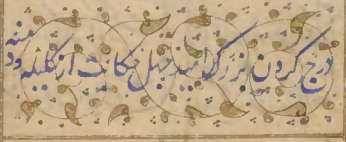 درج کردن بزرگ امید چهل حکایت از کلیله ودمنه